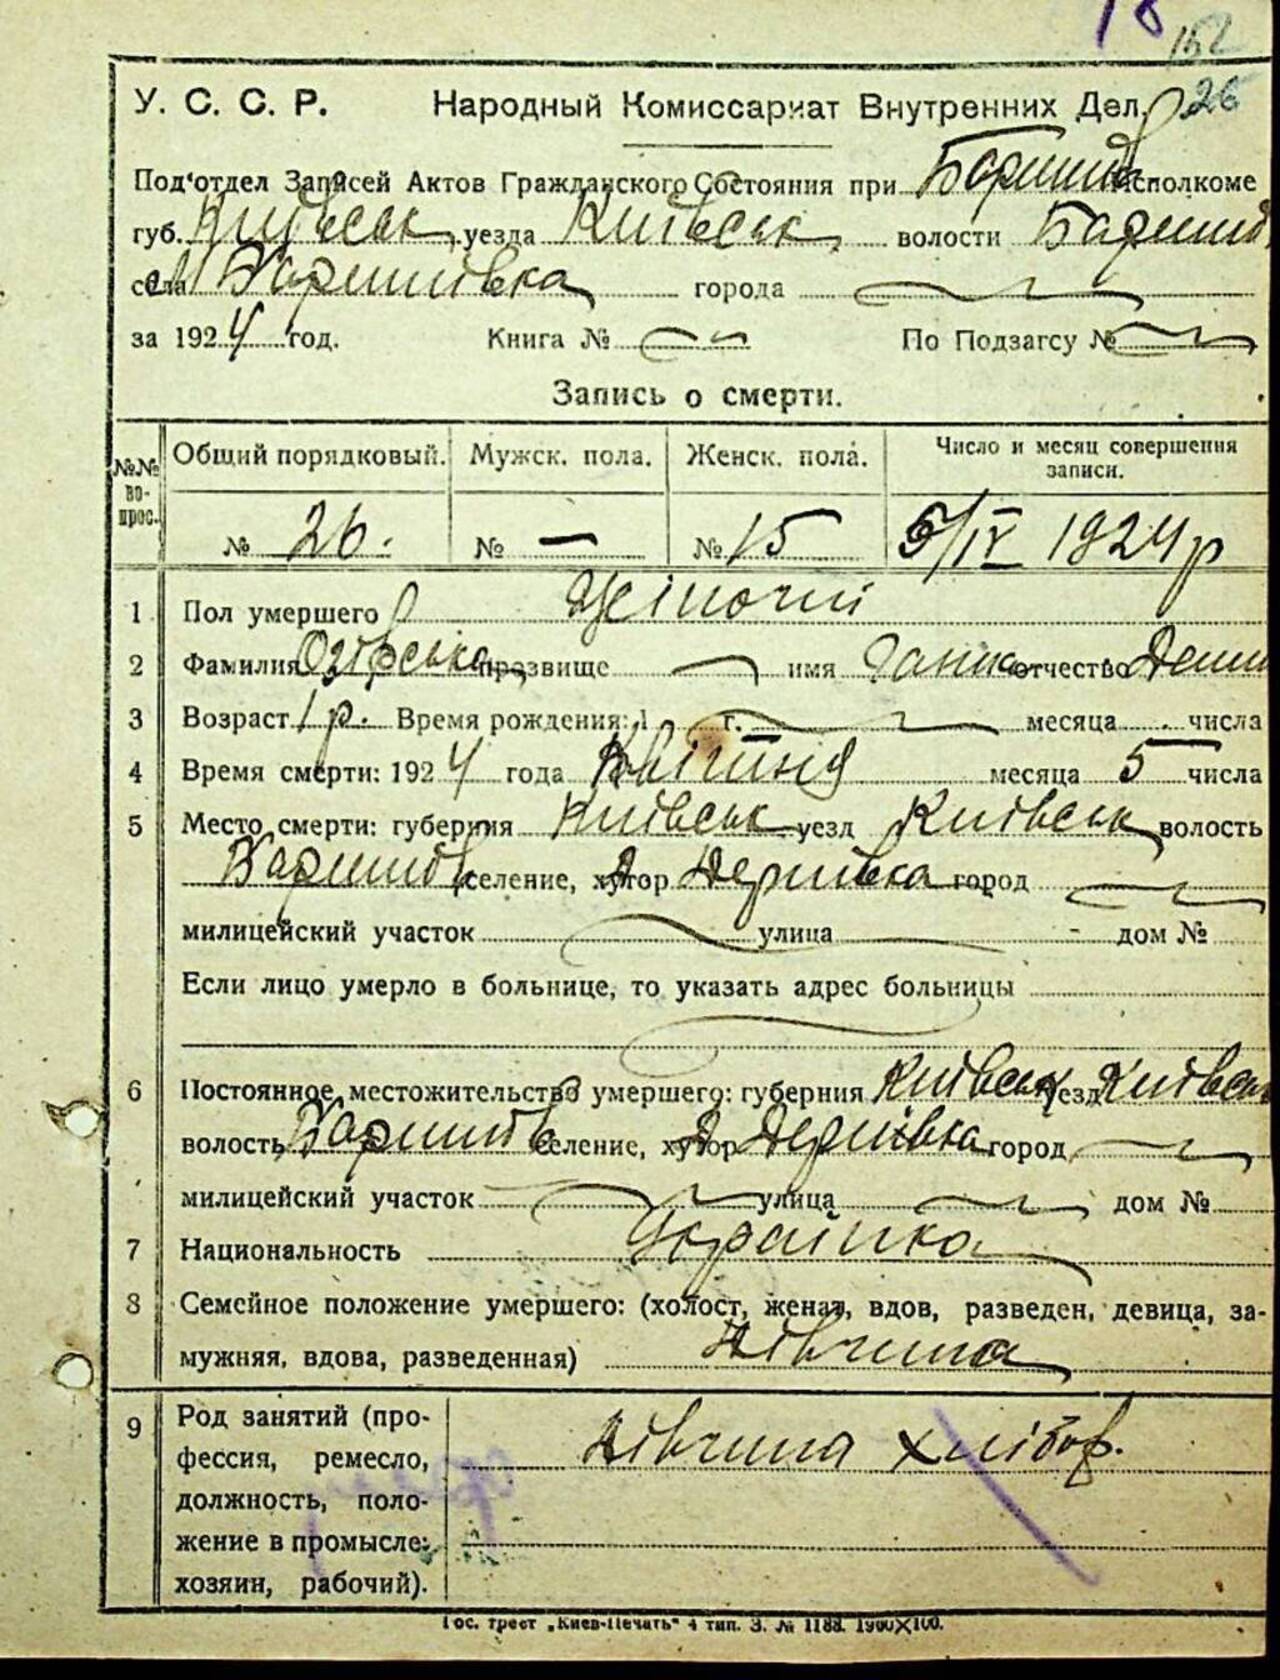 18
152
26
У. С. С. Р. Народный Комиссариат Внутренних Дел.
Под'отдел Записей Актов Гражданского Состояния при Баришів. исполкоме
губ. Київськ. уезда Київськ. волости Баришів.
села Баришівка города
за 1924 год. Книга № По Подзагсу №
Запись о смерти.
№№ во-прос. Общий порядковый. Мужск. пола. Женск. пола. Число и месяц совершения записи.
№ 26. № — № 15 5/IV 1924 р
1 Пол умершего Жіночий
2 Фамилия прозвище имя Ганна отчество
3 Возраст 1 р. Время рождения: 1 г. месяца числа
4 Время смерти: 1924 года Квітня месяца 5 числа
5 Место смерти: губерния Київськ уезд Київськ волость
Баришів селение, хутор Дернівка город
милицейский участок улица дом №
Если лицо умерло в больнице, то указать адрес больницы
6 Постоянное местожительство умершего: губерния Київськ уезд Київськ
волость Баришів селение, хутор Дернівка город
милицейский участок улица дом №
7 Национальность Українка
8 Семейное положение умершего: (холост, женат, вдов, разведен, девица, за-
мужняя, вдова, разведенная) дівчина
9 Род занятий (про- дівчина хлібор.
фессия, ремесло,
должность, поло-
жение в промысле:
хозяин, рабочий).
Гос. трест „Киев-Печать" 4 тип. З. № 1188. 1900×100.